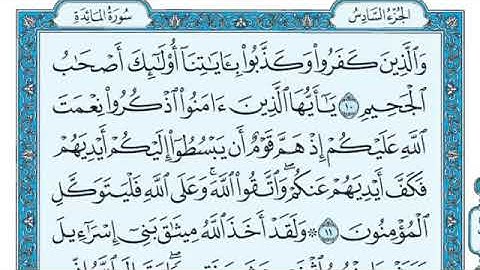 الجزء السادس
سورة المائدة
وَالَّذِينَ كَفَرُوا۟ وَكَذَّبُوا۟ بِـَٔايَـٰتِنَآ أُو۟لَـٰٓئِكَ أَصْحَـٰبُ
ٱلْجَحِيمِ ١٠ يَـٰٓأَيُّهَا ٱلَّذِينَ ءَامَنُوا۟ ٱذْكُرُوا۟ نِعْمَتَ
ٱللَّهِ عَلَيْكُمْ إِذْ هَمَّ قَوْمٌ أَن يَبْسُطُوٓا۟ إِلَيْكُمْ أَيْدِيَهُمْ
فَكَفَّ أَيْدِيَهُمْ عَنكُمْ ۖ وَٱتَّقُوا۟ ٱللَّهَ ۚ وَعَلَى ٱللَّهِ فَلْيَتَوَكَّلِ
ٱلْمُؤْمِنُونَ ١١ ۞ وَلَقَدْ أَخَذَ ٱللَّهُ مِيثَـٰقَ بَنِىٓ إِسْرَٰٓءِيلَ